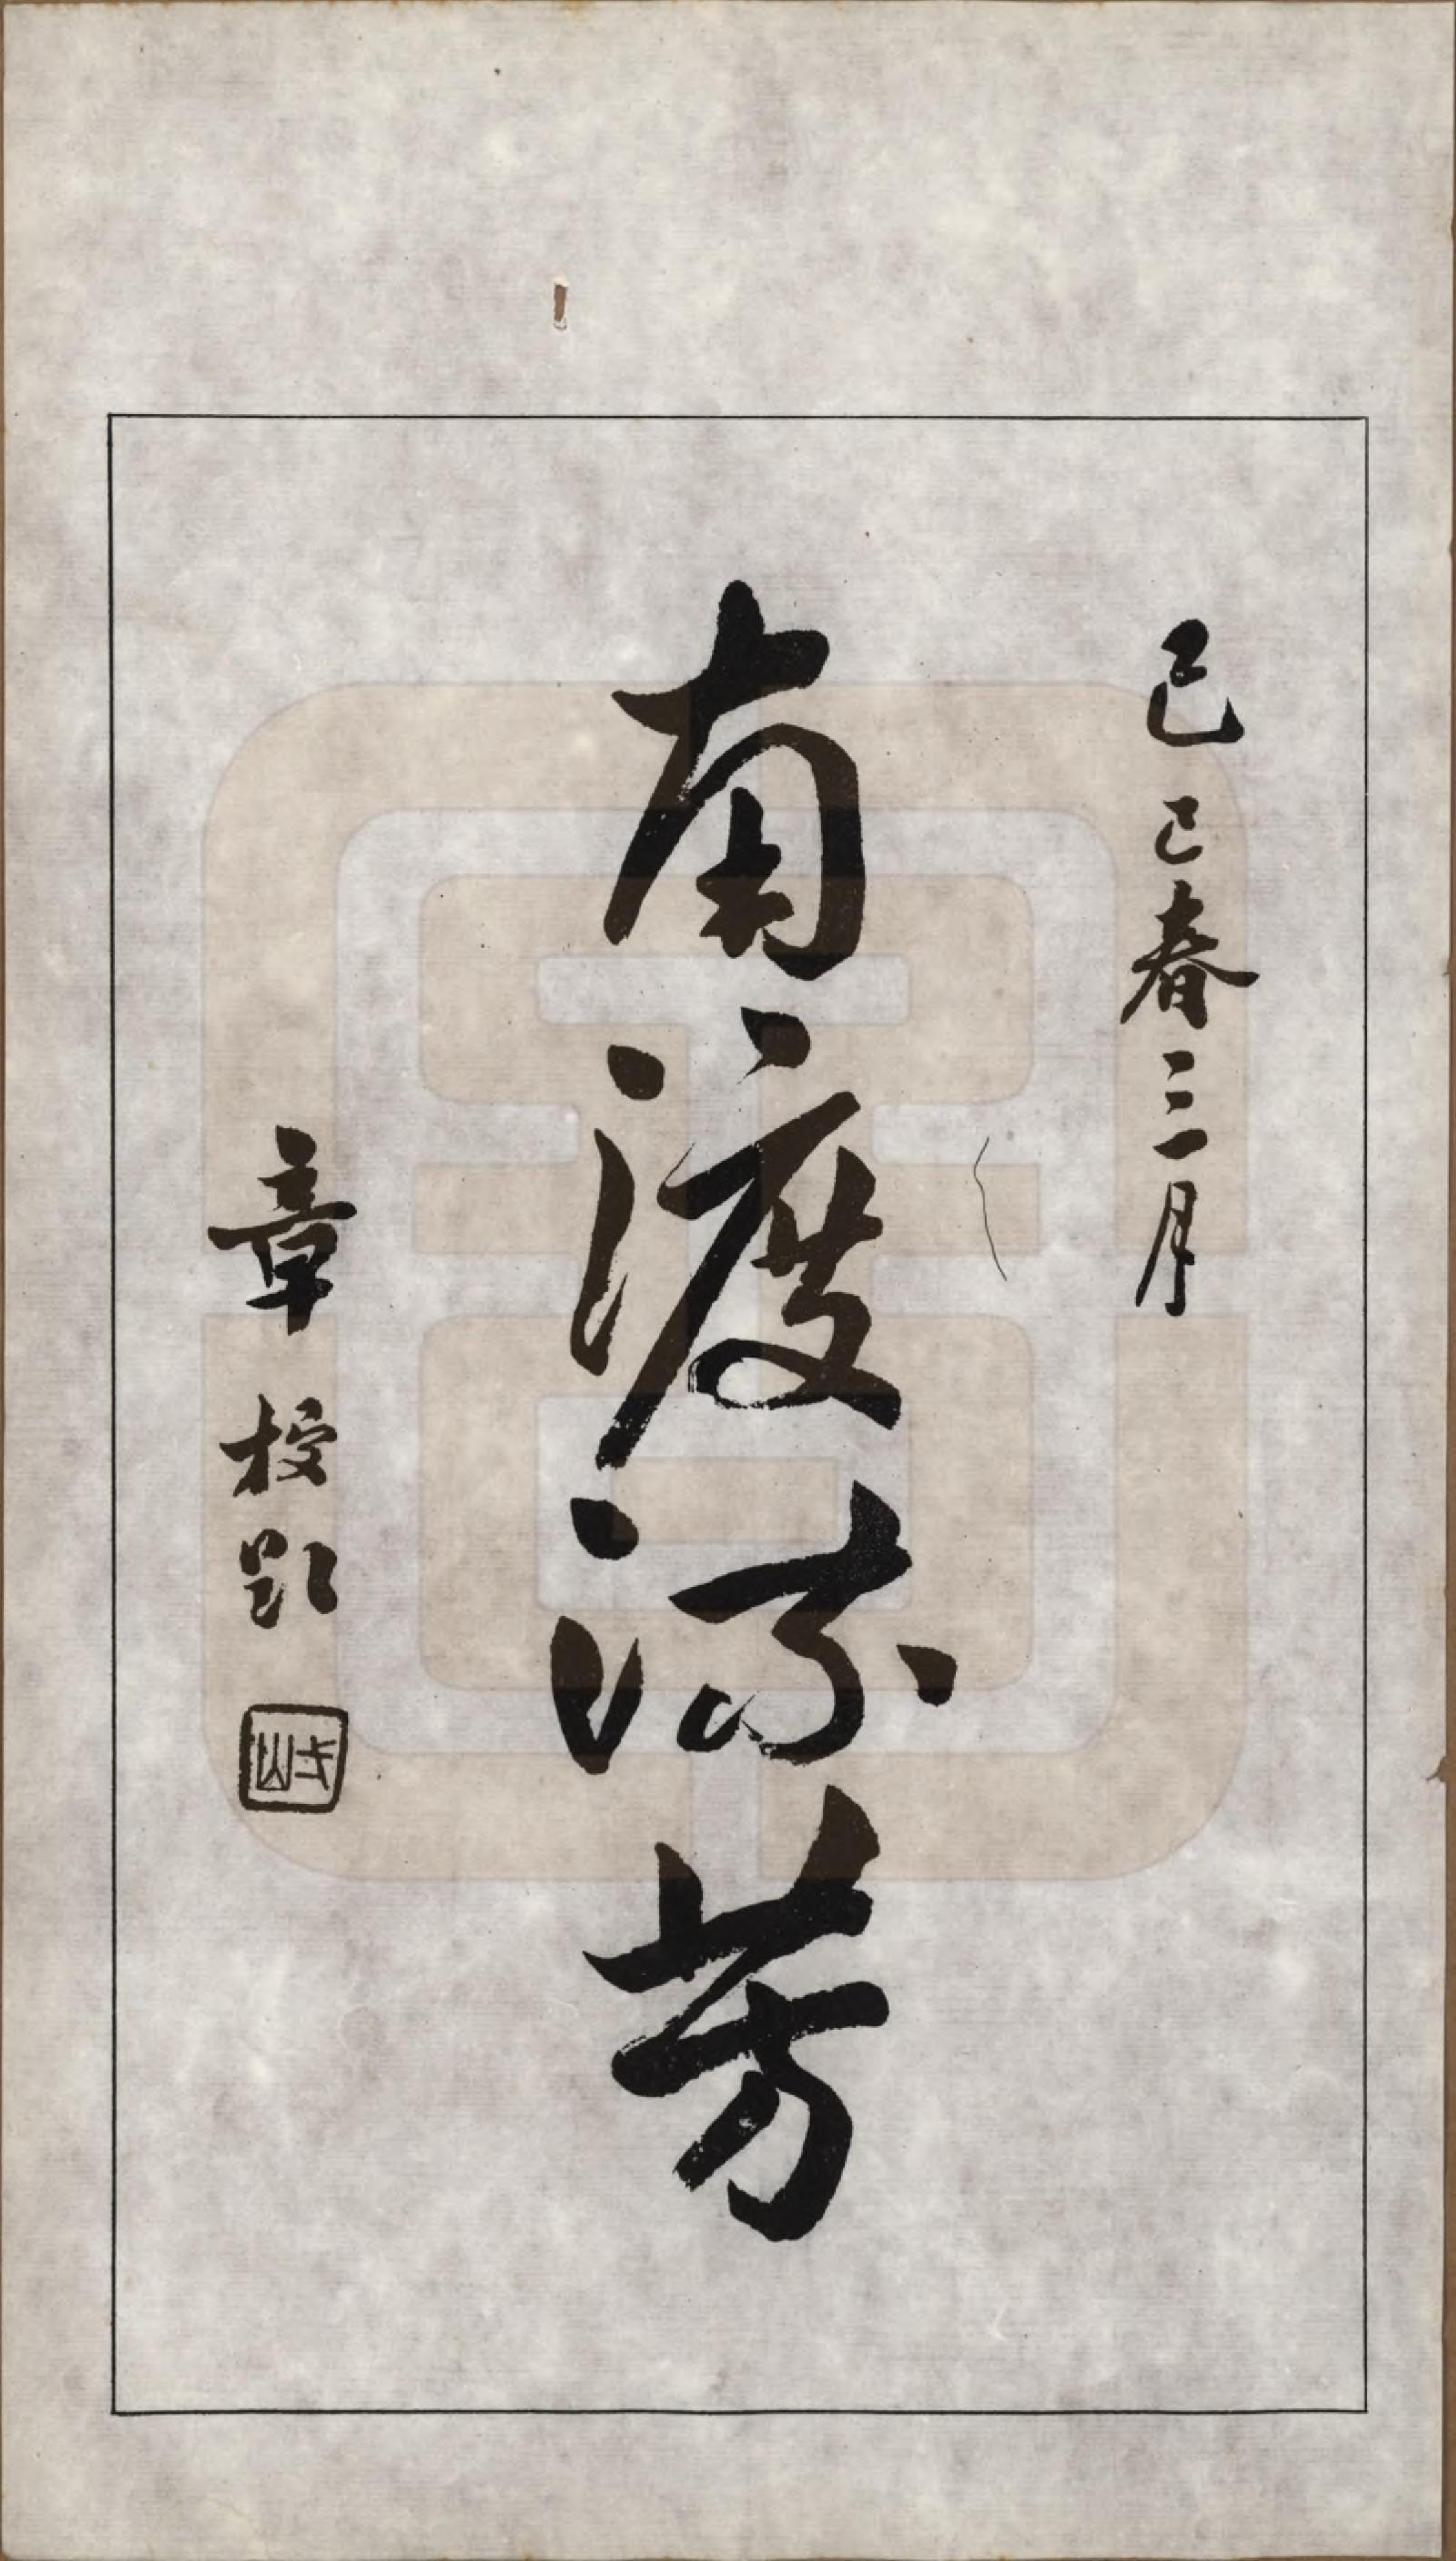 己巳春三月
南渡流芳
章梫題